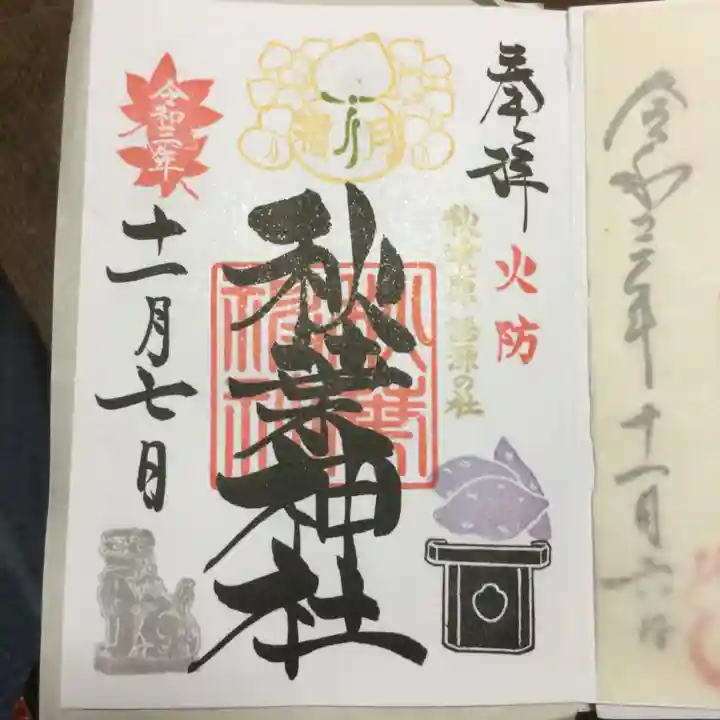 奉拝
火防
秋葉原 語源の社
霜月
秋葉神社
秋葉神社
令和三年
十一月七日
令和三年十一月六日